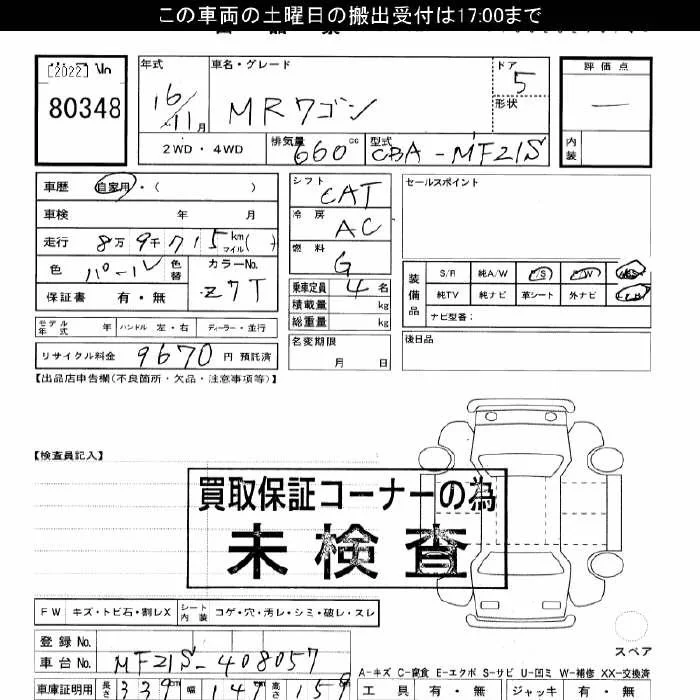 この車両の土曜日の搬出受付は17:00まで
[2022] No
80348
年式
16/11月
車名・グレード
MRワゴン
ドア
5
形状
評価点
—
内装
2WD・4WD
排気量
660cc
型式
CBA-MF21S
車歴 自家用・( )
車検 年 月
走行 8万9千715km マイル( )
色 パール 色替 カラーNo. Z7T
保証書 有・無
シフト CAT
冷房 AC
燃料 G
乗車定員 4名
積載量 kg
総重量 kg
セールスポイント
装備品
S/R 純A/W P/S P/W
純TV 純ナビ 革シート 外ナビ
ナビ型番:
モデル年式 年 ハンドル 左・右 ディーラー・並行
リサイクル料金 9670円 預託済
名変期限
月 日
後日品
【出品店申告欄(不良箇所・欠品・注意事項等)】
【検査員記入】
買取保証コーナーの為
未検査
FW キズ・トビ石・割レX シート内装 コゲ・穴・汚レ・シミ・破レ・スレ
登録No.
車台No. MF21S-408057
スペア
A-キズ C-腐食 E-エクボ S-サビ U-凹ミ W-補修 XX-交換済
車庫証明用 長さ 339cm 幅 147 高さ 159
工具 有・無 ジャッキ 有・無